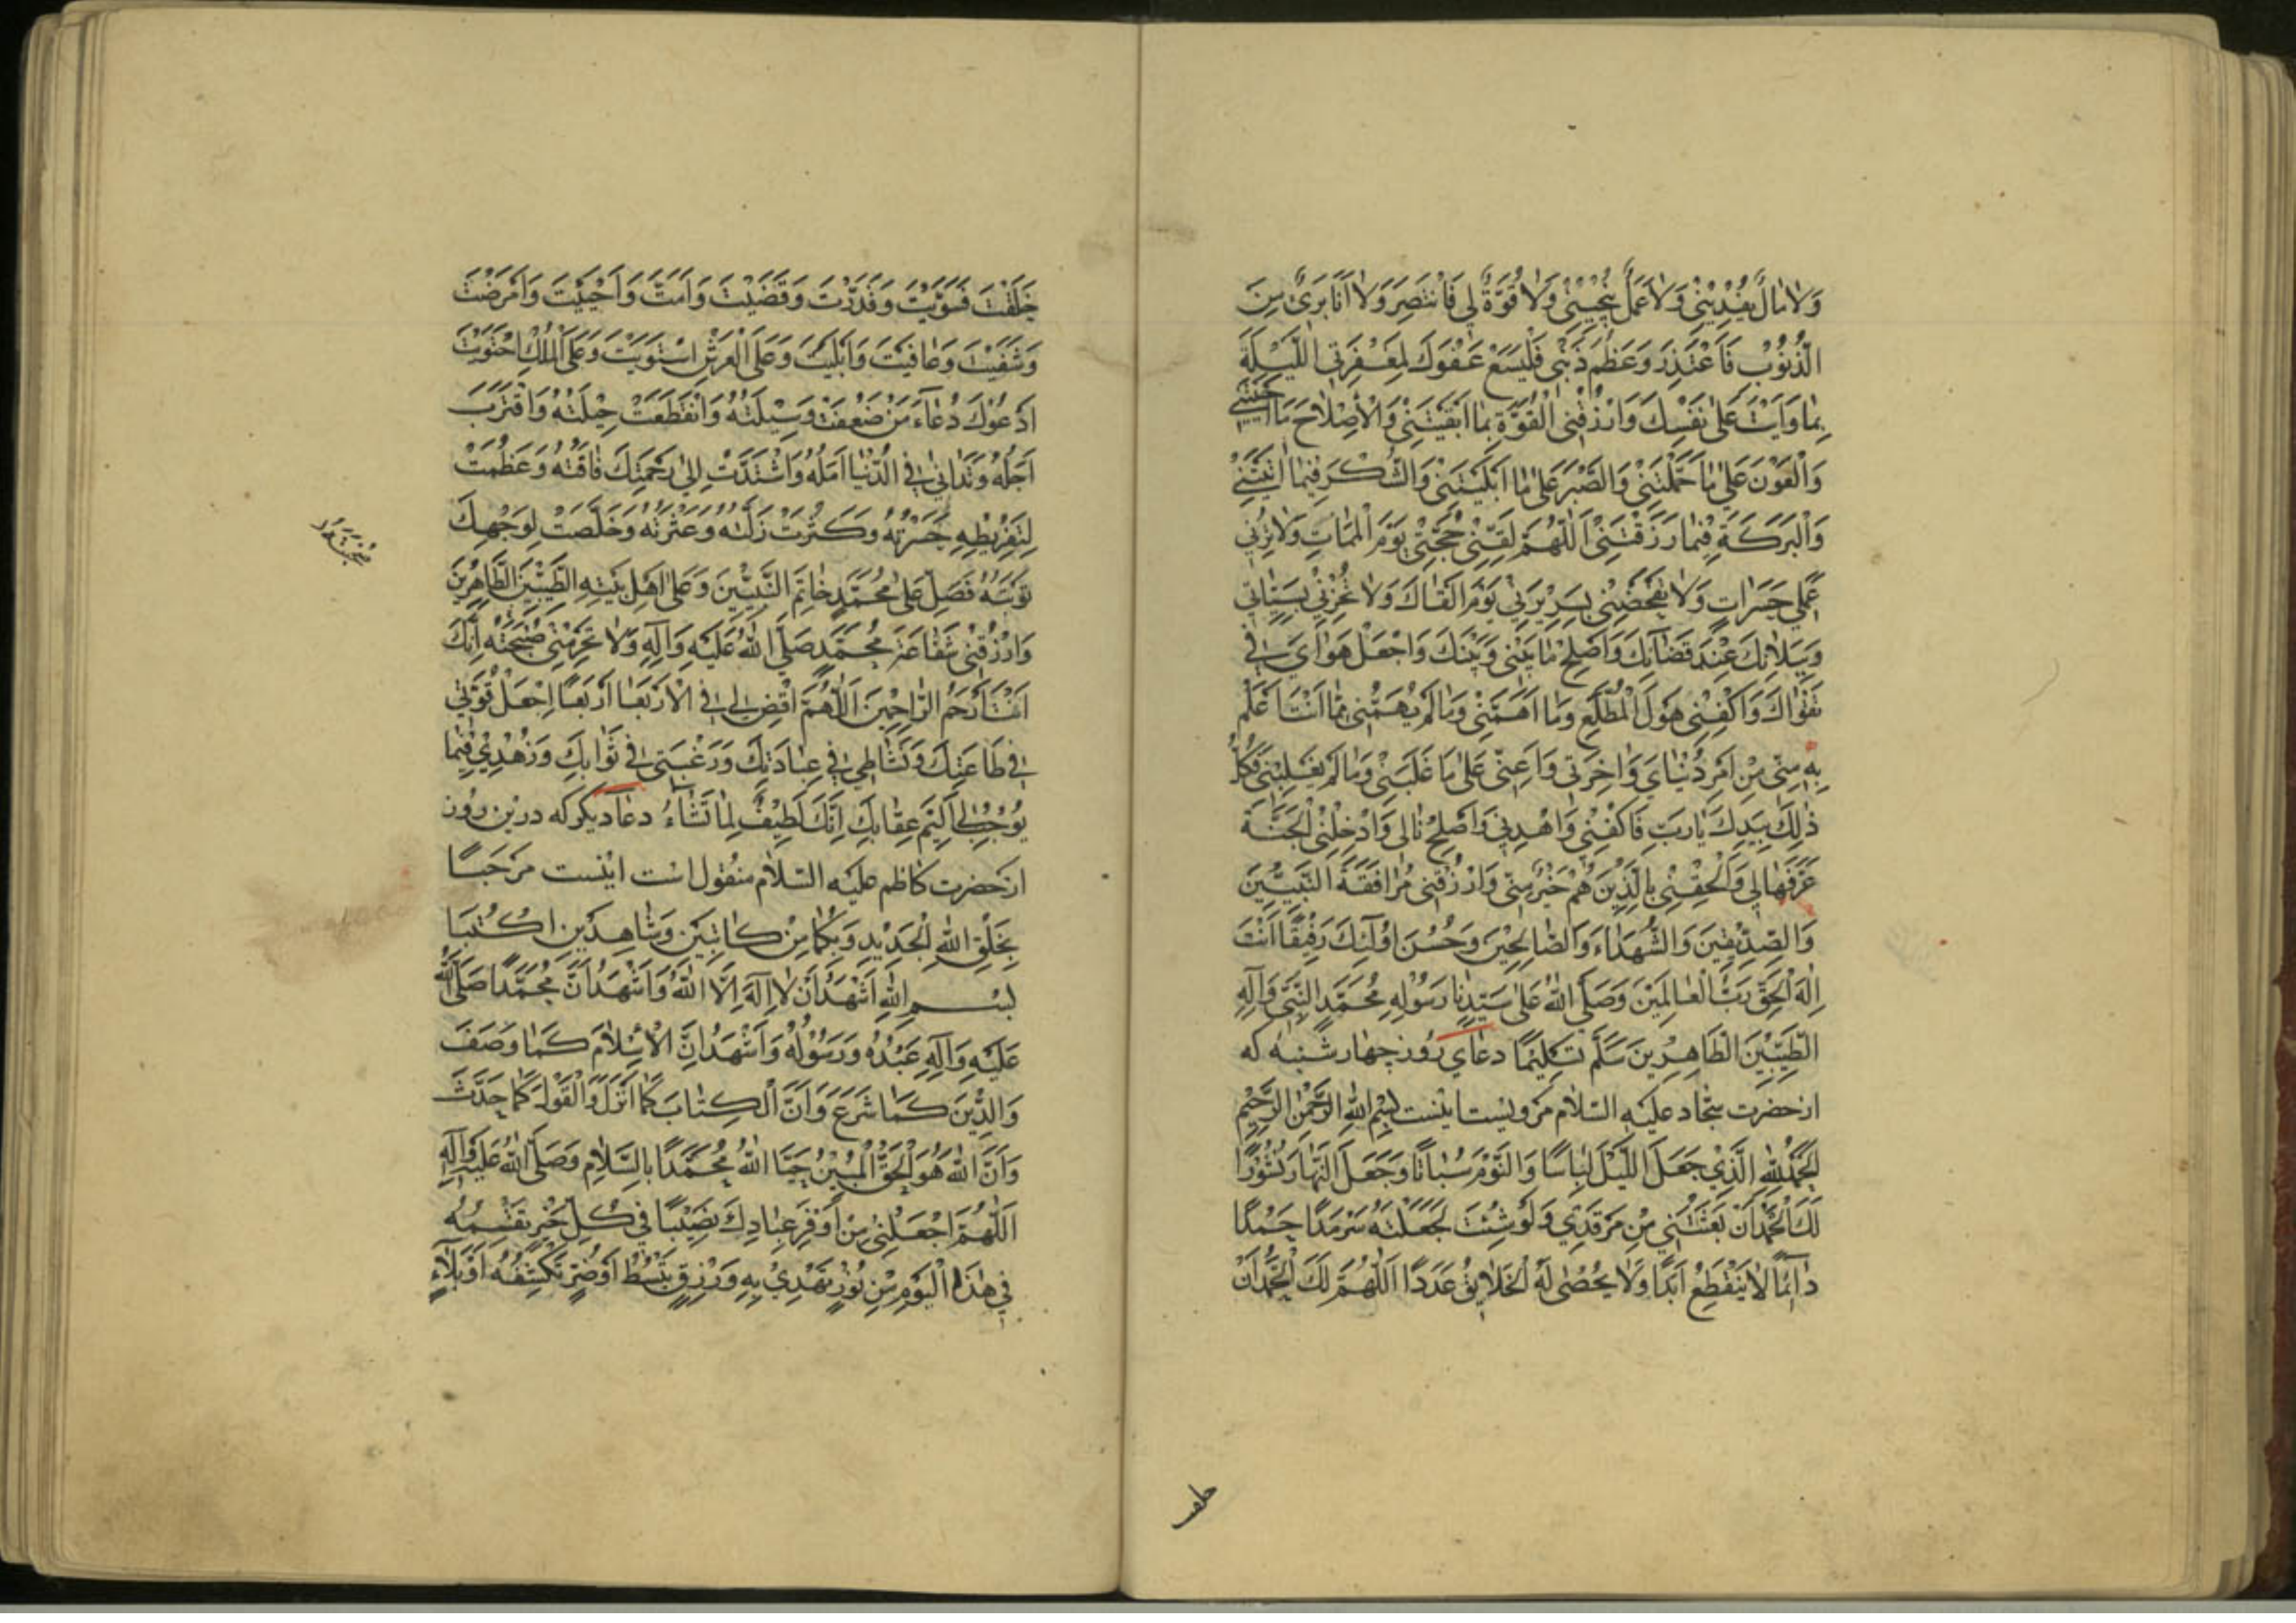 وَلَا مَالٌ يَفْدِيْنِيْ وَلَا عَمَلٌ يُنْجِيْنِيْ وَلَا قُوَّةٌ لِي فَانْتَصِرَ وَلَا اَنَا بَرِیٌٔ مِنَ
الذُّنُوْبِ فَاَعْتَذِرَ وَعَظُمَ ذَنْبِي فَلْيَسَعْ عَفْوَكَ لِمَغْفِرَتِي اللَّيْلَةَ
بِمَا وَاَيْتَ عَلَى نَفْسِكَ وَارْزُقْنِي الْقُوَّةَ بِمَا اَبْقَيْتَنِيْ وَالْاِصْلَاحَ مَا اَحْيَيْتَنِي
وَالْعَوْنَ عَلَى مَا حَمَّلْتَنِيْ وَالصَّبْرَ عَلَى مَا اَبْلَيْتَنِيْ وَالشُّكْرَ فِيْمَا اٰتَيْتَنِيْ
وَالْبَرَكَةَ فِيْمَا رَزَقْتَنِيْ اَللّٰهُمَّ لَقِّنِيْ حُجَّتِيْ يَوْمَ الْمَمَاتِ وَلَا تُرِنِي
عَمَلِي حَسَرَاتٍ وَلَا تَفْضَحْنِيْ بِسَرِيْرَتِيْ يَوْمَ اَلْقَاكَ وَلَا تُخْزِنِيْ بِسَيِّئَاتِي
وَبِبَلَائِكَ عِنْدَ قَضَائِكَ وَاَصْلِحْ مَا بَيْنِي وَبَيْنَكَ وَاجْعَلْ هَوَايَ فِي
تَقْوَاكَ وَاكْفِنِيْ هَوْلَ الْمُطَّلَعِ وَمَا اَهَمَّنِيْ وَمَا لَمْ يُهِمَّنِي مِمَّا اَنْتَ اَعْلَمُ
بِهِ مِنِّي مِنْ اَمْرِ دُنْيَايَ وَاٰخِرَتِي وَاَعِنِّي عَلَى مَا غَلَبَنِيْ وَمَا لَمْ يَغْلِبْنِي فَكُلُّ
ذٰلِكَ بِيَدِكَ يَا رَبِّ فَاكْفِنِي وَاهْدِنِي وَاَصْلِحْ بَالِي وَاَدْخِلْنِي الْجَنَّةَ
عَرَّفْهَا لِي وَاَلْحِقْنِي بِالَّذِيْنَ هُمْ خَيْرٌ مِنِّي وَارْزُقْنِي مُرَافَقَةَ النَّبِيِّيْنَ
وَالصِّدِّيْقِيْنَ وَالشُّهَدَاءِ وَالصَّالِحِيْنَ وَحَسُنَ اُولٰئِكَ رَفِيْقًا اَنْتَ
اِلٰهَ الْحَقِّ رَبَّ الْعَالَمِيْنَ وَصَلَّى اللّٰهُ عَلَى سَيِّدِنَا رَسُوْلِهِ مُحَمَّدٍ النَّبِيِّ وَآلِهِ
الطَّيِّبِيْنَ الطَّاهِرِيْنَ سَلَّمَ تَسْلِيْمًا دعای روز چهار شنبه که
از حضرت سجّاد علیه السلام مرویست اینست بِسْمِ اللّٰهِ الرَّحْمٰنِ الرَّحِيْمِ
اَلْحَمْدُ لِلّٰهِ الَّذِيْ جَعَلَ اللَّيْلَ لِبَاسًا وَالنَّوْمَ سُبَاتًا وَجَعَلَ النَّهَارَ نُشُوْرًا
لَكَ الْحَمْدُ اَنْ بَعَثْتَنِي مِنْ مَرْقَدِي وَلَوْ شِئْتَ لَجَعَلْتَهُ سَرْمَدًا حَمْدًا
دَائِمًا لَا يَنْقَطِعُ اَبَدًا وَلَا يُحْصٰى لَهُ الْخَلَائِقُ عَدَدًا اَللّٰهُمَّ لَكَ الْحَمْدُ اَنْ
خلقت
خَلَقْتَ فَسَوَّيْتَ وَقَدَّرْتَ وَقَضَيْتَ وَاَمَتَّ وَاَحْيَيْتَ وَاَمْرَضْتَ
وَشَفَيْتَ وَعَافَيْتَ وَاَبْلَيْتَ وَعَلَى الْعَرْشِ اسْتَوَيْتَ وَعَلَى الْمُلْكِ احْتَوَيْتَ
اَدْعُوْكَ دُعَاءَ مَنْ ضَعُفَتْ وَسِيْلَتُهُ وَانْقَطَعَتْ حِيْلَتُهُ وَاقْتَرَبَ
اَجَلُهُ وَتَدَانٰى فِي الدُّنْيَا اَمَلُهُ وَاشْتَدَّتْ اِلٰى رَحْمَتِكَ فَاقَتُهُ وَعَظُمَتْ
لِتَفْرِيْطِهِ حَسْرَتُهُ وَكَثُرَتْ زَلَّتُهُ وَعَثْرَتُهُ وَخَلَصَتْ لِوَجْهِكَ
تَوْبَتُهُ فَصَلِّ عَلَى مُحَمَّدٍ خَاتَمِ النَّبِيِّيْنَ وَعَلَى اَهْلِ بَيْتِهِ الطَّيِّبِيْنَ الطَّاهِرِيْنَ
وَارْزُقْنِي شَفَاعَةَ مُحَمَّدٍ صَلَّى اللّٰهُ عَلَيْهِ وَآلِهِ وَلَا تَحْرِمْنِي صُحْبَتَهُ اِنَّكَ
اَنْتَ اَرْحَمُ الرَّاحِمِيْنَ اَللّٰهُمَّ اقْضِ لِي فِي الْاَرْبَعَا اَرْبَعًا اِجْعَلْ قُوَّتِي
فِي طَاعَتِكَ وَنَشَاطِي فِي عِبَادَتِكَ وَرَغْبَتِي فِي ثَوَابِكَ وَزُهْدِيْ فِيْمَا
يُوْجِبُ لِي اَلِيْمَ عِقَابِكَ اِنَّكَ لَطِيْفٌ لِمَا تَشَاءُ دعاء دیگر که درین روز
از حضرت کاظم علیه السلام منقول است اینست مَرْحَبًا
بِخَلْقِ اللّٰهِ الْجَدِيْدِ وَبِكُمَا مِنْ كَاتِبَيْنِ وَشَاهِدَيْنِ اكْتُبَا
بِسْمِ اللّٰهِ اَشْهَدُ اَنْ لَا اِلٰهَ اِلَّا اللّٰهُ وَاَشْهَدُ اَنَّ مُحَمَّدًا صَلَّى اللّٰهُ
عَلَيْهِ وَآلِهِ عَبْدُهُ وَرَسُوْلُهُ وَاَشْهَدُ اَنَّ الْاِسْلَامَ كَمَا وَصَفَ
وَالدِّيْنَ كَمَا شَرَعَ وَاَنَّ الْكِتَابَ كَمَا اَنْزَلَ وَالْقَوْلَ كَمَا حَدَّثَ
وَاَنَّ اللّٰهَ هُوَ الْحَقُّ الْمُبِيْنُ حَيَّا اللّٰهُ مُحَمَّدًا بِالسَّلَامِ وَصَلَّى اللّٰهُ عَلَيْهِ وَآلِهِ
اَللّٰهُمَّ اجْعَلْنِي مِنْ اَوْفَرِ عِبَادِكَ نَصِيْبًا فِي كُلِّ خَيْرٍ تَقْسِمُهُ
فِي هٰذَا الْيَوْمِ مِنْ نُوْرٍ تَهْدِيْ بِهِ وَرِزْقٍ تَبْسُطُ اَوْ ضُرٍّ تَكْشِفُهُ اَوْ بَلَاءٍ